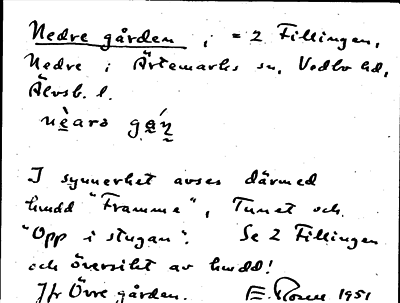 Nedre gården, i = 2 Fillingen,
Nedre i Ärtemarks sn, Vedbo hd,
Älvsb. l.
I synnerhet avses därmed
hmdd "Framme", Tunet och
"Opp i stugan". Se 2 Fillingen
och översikt av hmdd!
Jfr Övre gården. 1951